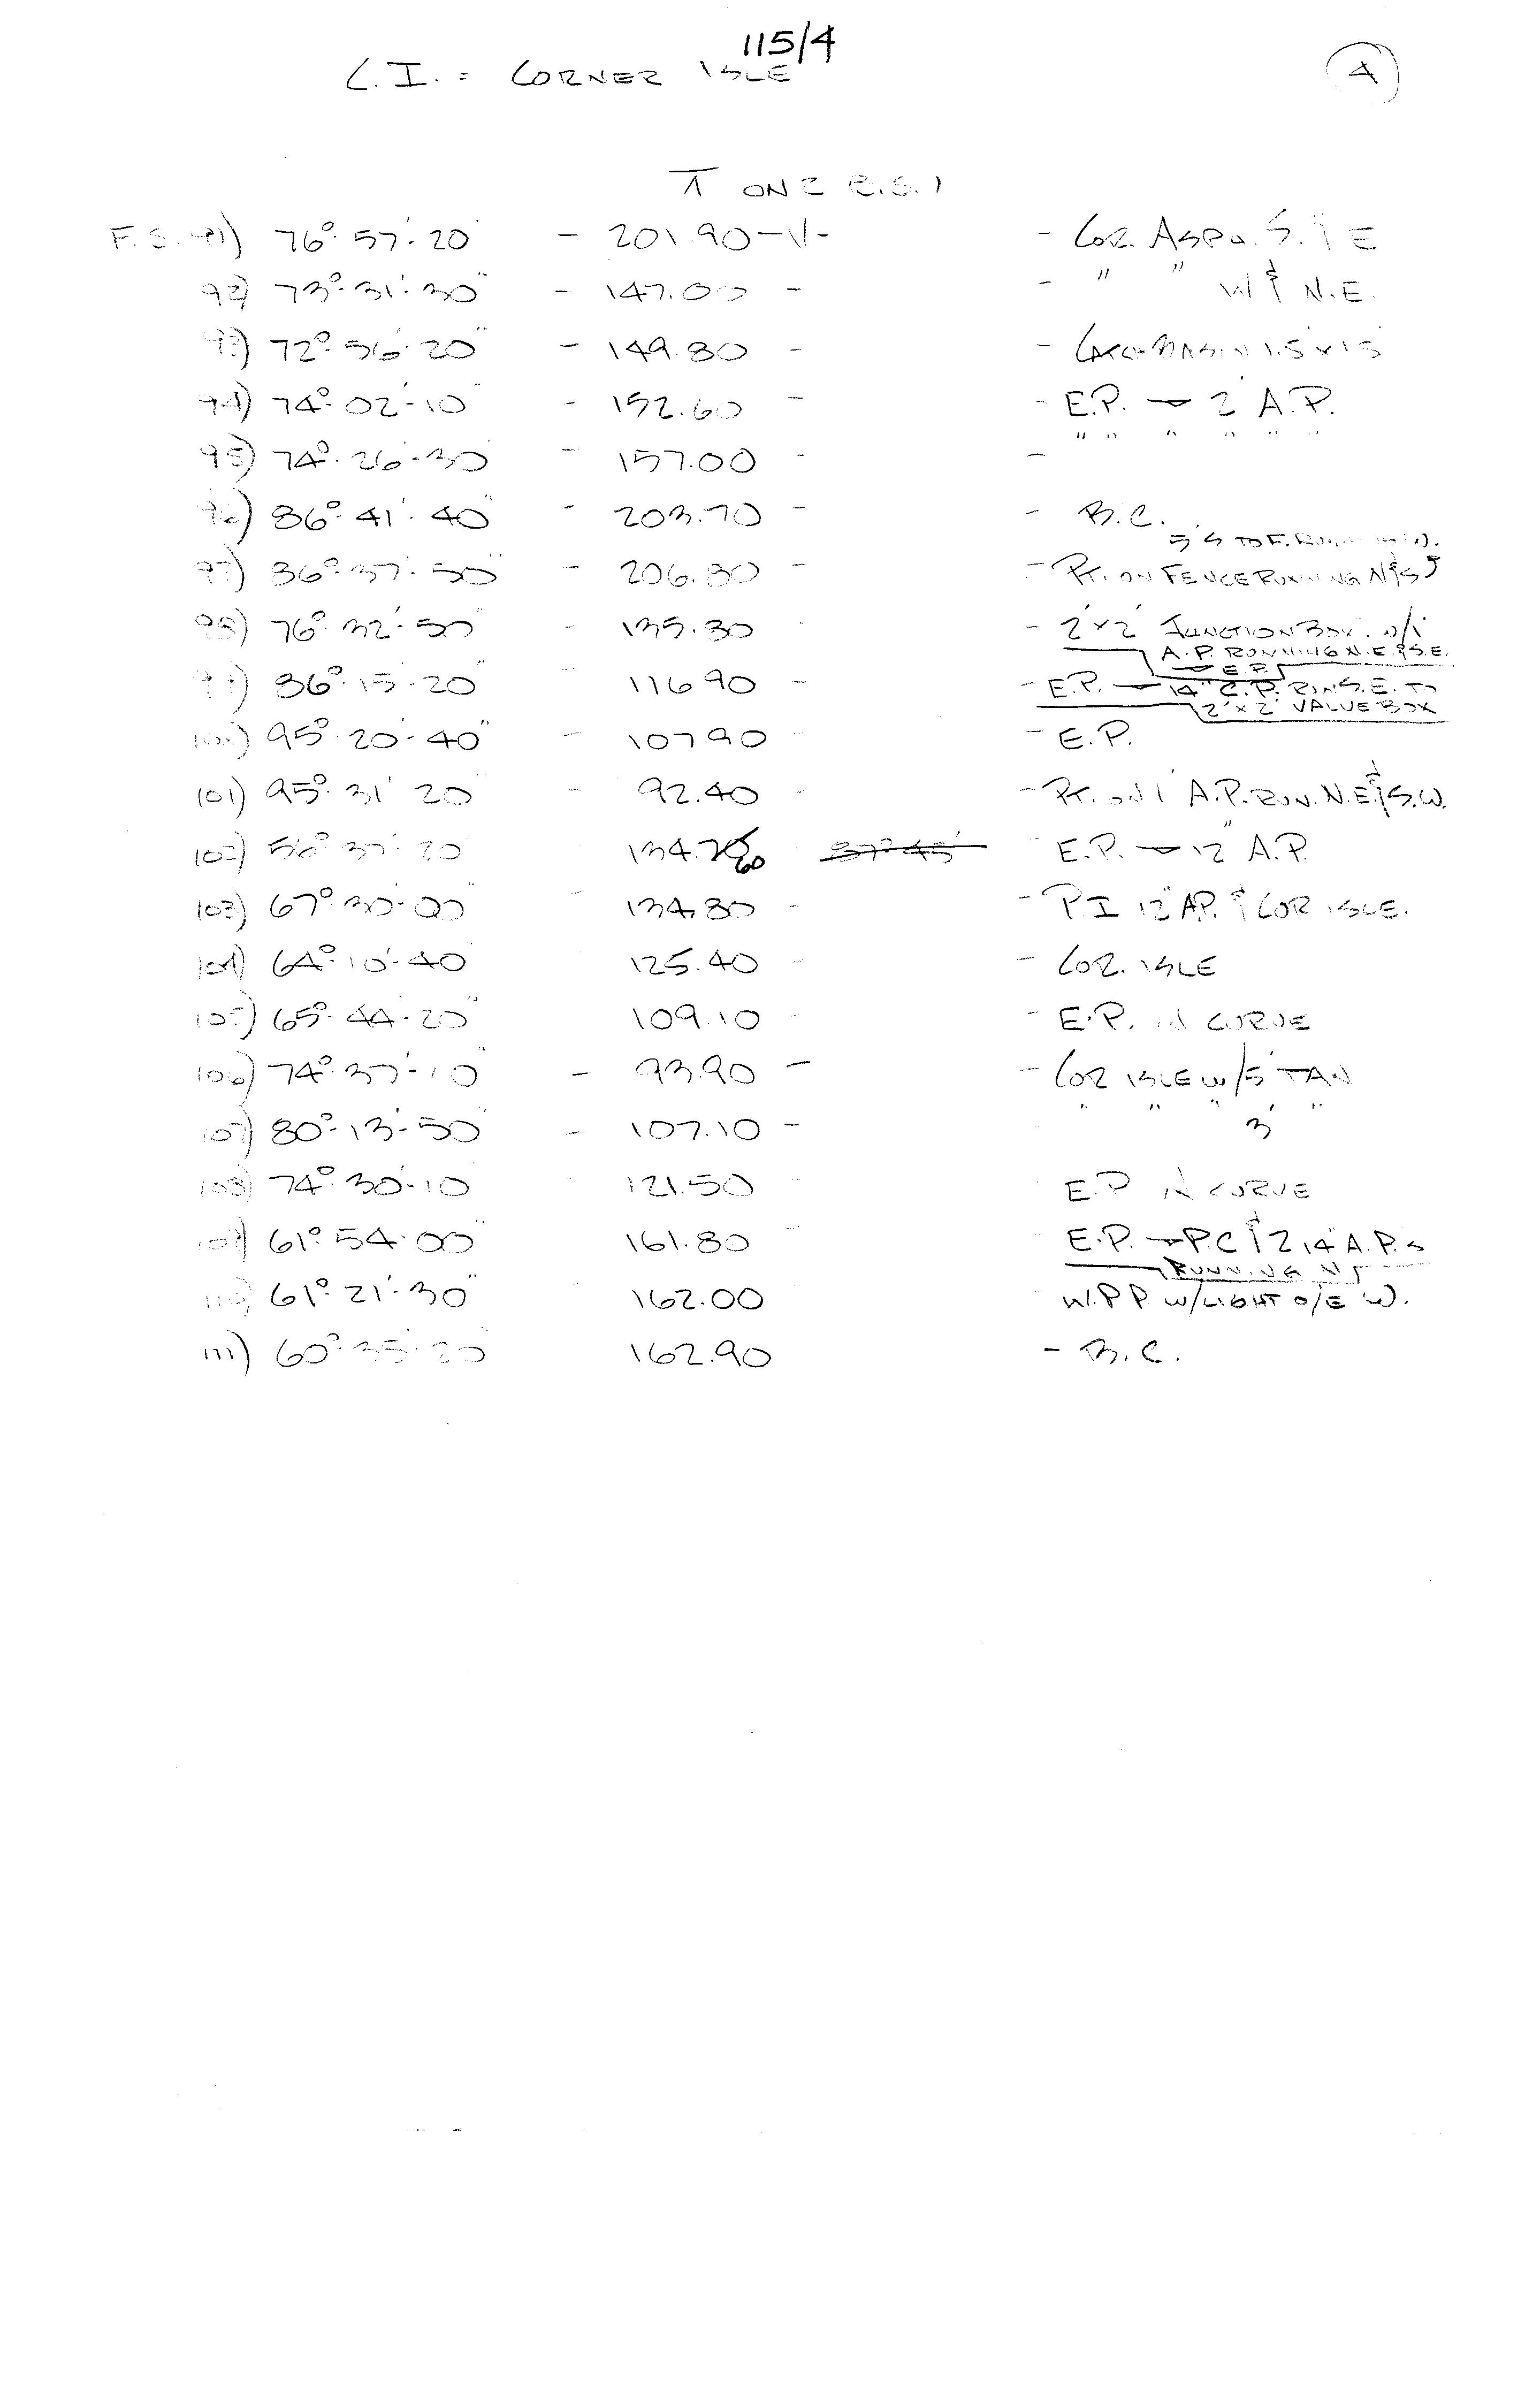 115/4
C.I. : CORNER ISLE
4
⊼ ON 2 R.S. 1
F.S. 91) 76°-57'-20" - 201.90 -V- - COR. ASPH. S. & E
92) 73°-31'-30" - 147.00 - - " " W & N.E.
93) 72°-56'-20" - 149.80 - - CATCH BASIN 1.5 x 1.5
94) 74°-02'-10" - 152.60 - - E.P. → 2' A.P.
95) 74°-26'-30" - 157.00 - - " " " " " "
96) 86°-41'-40" - 203.70 - - B.C.
5' S TO F.
97) 86°-37'-50" - 206.80 - - PT. ON FENCE RUNNING N & S
98) 76°-32'-50" - 135.30 - 2' x 2' JUNCTION BOX W/1'
A.P. RUNNING N.E. & S.E.
→ E.P.
99) 86°-15'-20" 116.90 - - E.P. → 14" C.P. RUN S.E. TO
2' x 2' VALUE BOX
100) 95°-20'-40" - 107.90 - E.P.
101) 95°-31'-20" - 92.40 - - PT. ON 1' A.P. RUN. N.E. & S.W.
102) 56°-37'-20" 134.60 37°45' E.P. → 12" A.P.
103) 67°-30'-00" 134.80 - - P I 12" A.P. & COR ISLE.
104) 64°-10'-40" 125.40 - - COR. ISLE
105) 65°-44'-20" 109.10 - E.P. IN CURVE
106) 74°-37'-10" - 93.90 - - COR ISLE W/5' TAN
107) 80°-13'-50" - 107.10 - " " " 3' "
108) 74°-30'-10" 121.50 E.P IN CURVE
109) 61°-54'-00" 161.80 - E.P. → P.C & 2 14" A.P.s
RUNNING N
110) 61°-21'-30" 162.00 W.P.P W/LIGHT O/E W.
111) 60°-35'-20" 162.90 - B.C.